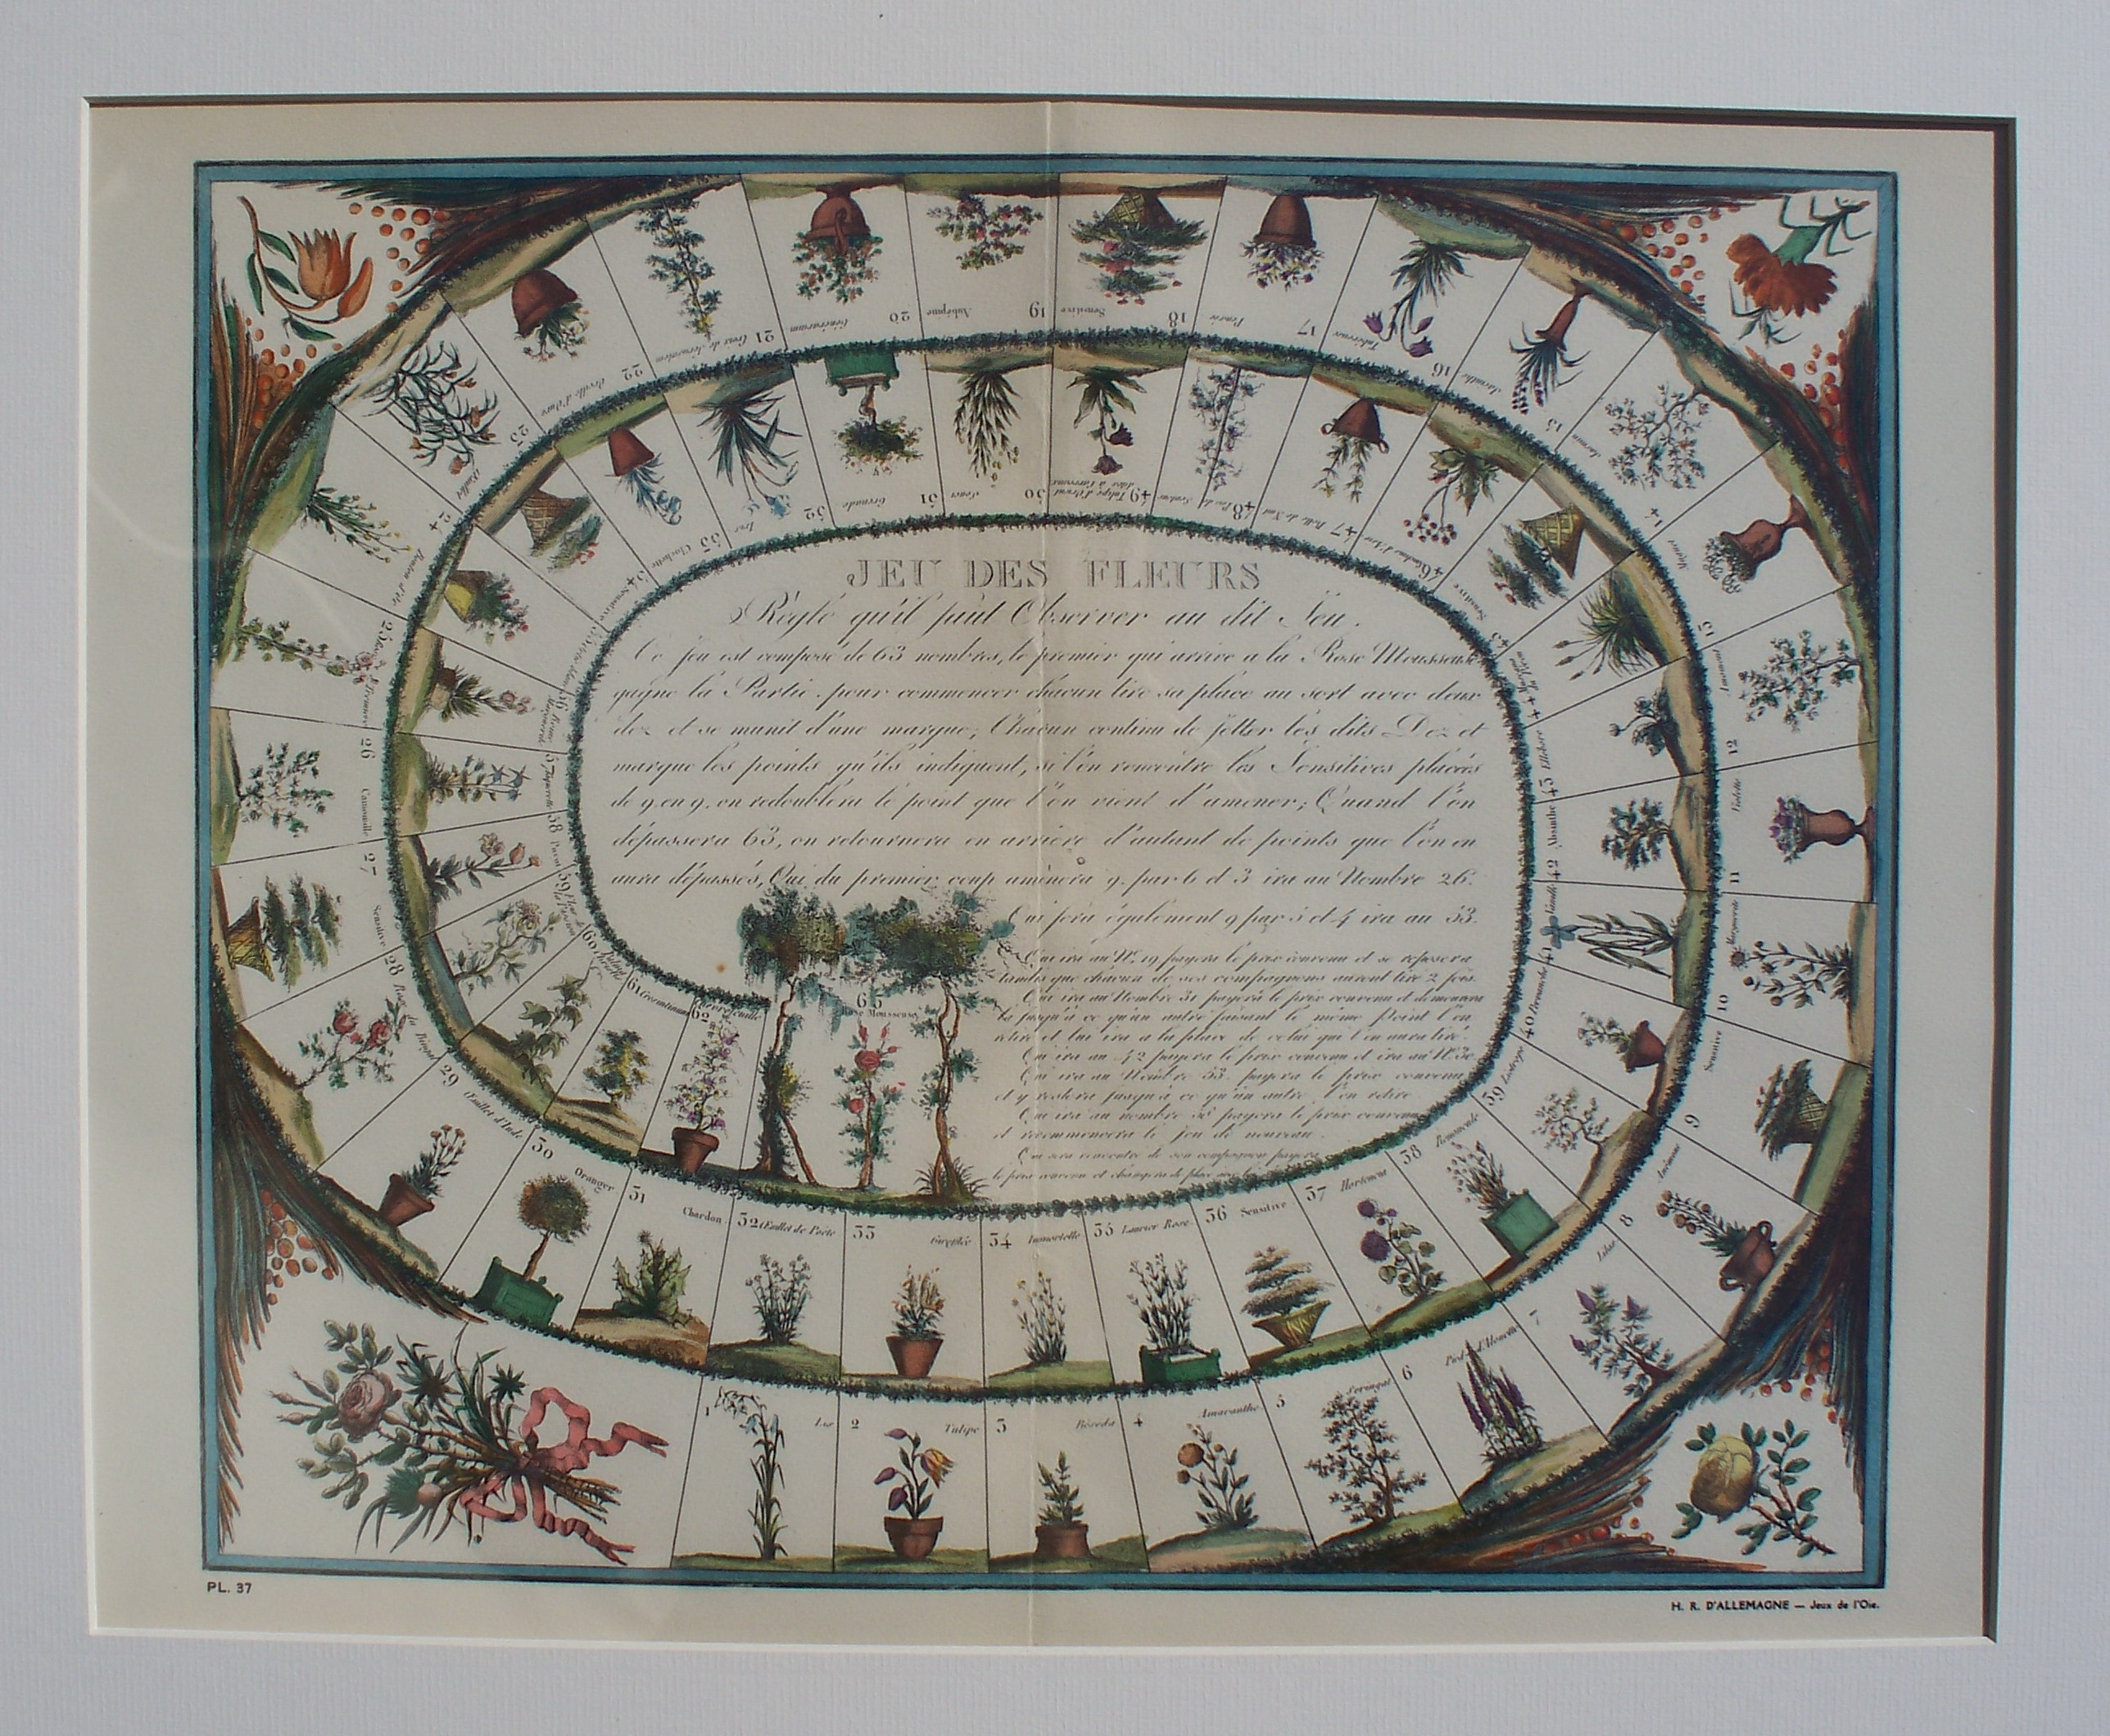 JEU DES FLEURS
Règle qu'il faut Observer au dit Jeu.
Ce jeu est composé de 63 nombres, le premier qui arrive a la Rose Mousseuse
gagne la Partie. pour commencer chacun tire sa place au sort avec deux
dez et se munit d'une marque, Chacun continu de jetter les dits Dez et
marque les points qu'ils indiquent, si l'on rencontre les Sensitives placées
de 9 en 9, on redoublera le point que l'on vient d'amener; Quand l'on
dépassera 63, on retournera en arrière d'autant de points que l'on en
aura dépassés, Qui du premier coup amènera 9. par 6 et 3 ira au Nombre 26.
Qui fera également 9 par 5 et 4 ira au 53.
Qui ira au N°. 19 payera le prix convenu et se reposera
tandis que chacun de ses compagnons auront tiré 2 fois.
Qui ira au Nombre 31 payera le prix convenu et demeurera
là jusqu'à ce qu'un autre faisant le même Point l'en
retire et lui ira a la place de celui qui l'en aura tiré.
Qui ira au 42 payera le prix convenu et ira au N°. 30.
Qui ira au Nombre 53. payera le prix convenu
et y restera jusqu'à ce qu'un autre l'en retire
Qui ira au nombre 58 payera le prix convenu
et recommencera le jeu de nouveau.
Qui sera rencontré de son compagnon payera
le prix convenu et changera de place avec lui
1 Lis
2 Tulipe
3 Réséda
4 Amaranthe
5 Seringat
6 Pied d'Alouette
7 Lilas
8 Anémone
9 Sensitive
10 Marguerite
11 Violette
12
13 Muguet
14
15 Jacinthe
16 Tubéreuse
17 Pensée
18 Sensitive
19 Aubépine
20 Géneranium
21 Croix de Jérusalem
22 Oreille d'Ours
23 Œuillet
24 Bouton d'or
25
26 Camomille
27 Sensitive
28 Rose du Bengal
29 Œuillet d'Inde
30 Oranger
31 Chardon
32 Œuillet de Poëte
33 Giroflée
34 Immortelle
35 Laurier Rose
36 Sensitive
37 Hortensia
38 Renoncule
39
40 Pervenche
41 Vanille
42 Absinthe
43 Ellébore
44
45 Sensitive
46
47 Belle de Nuit
48 Pois de Senteur
49
50 Souci
51 Grenade
52 Iris
53 Clochette
54 Sensitive
55
56
57
58 Pavot
59
60
61
62 Chevrefeuille
63
Rose Mousseuse
PL. 37
H. R. D'ALLEMAGNE — Jeux de l'Oie.